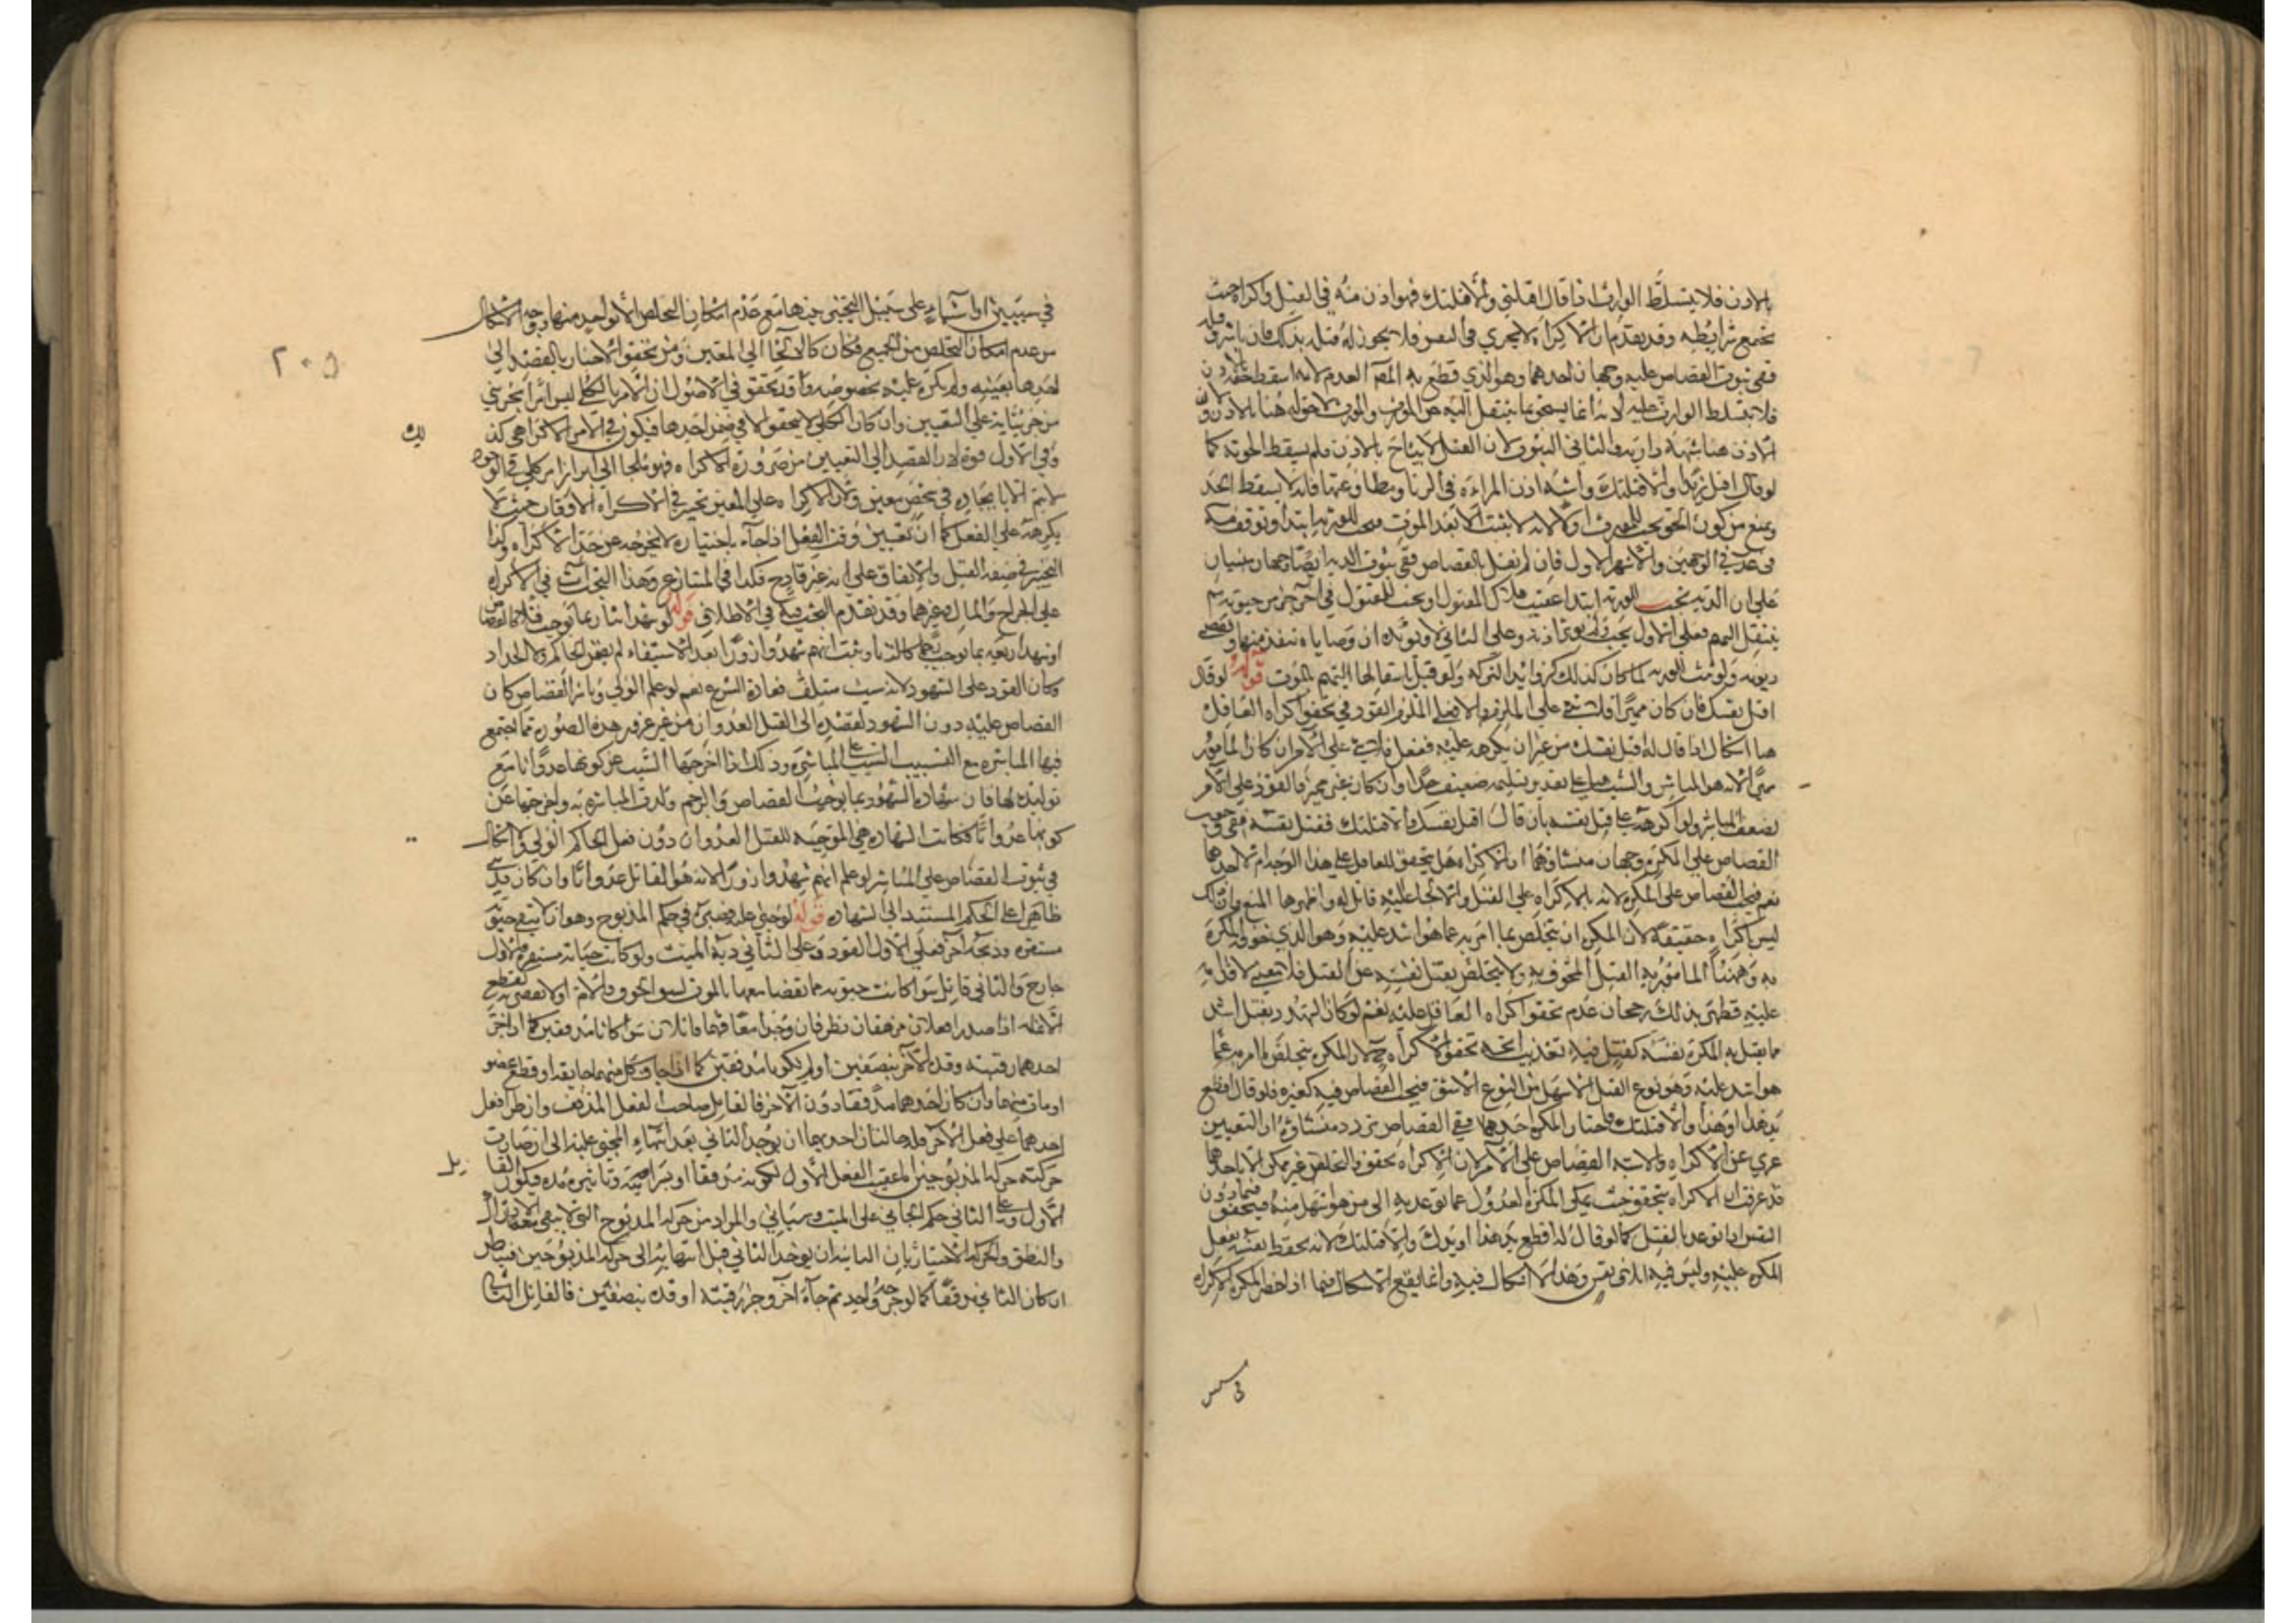 بالاذن فلا يتسلط الوارث اذا قال اقتلني والا قتلتك فهو اذن منه في القتل واكراه حيث
تجتمع شرايطه وقد تقدم ان الاكراه لا يجري في النفس فلا يجوز له قتله بذلك فان باشر قتله
ففي ثبوت القصاص عليه وجهان احدهما وهو الذي قطع به المصر العدم لانه اسقط حقه بالاذن
فلا يتسلط الوارث عليه لانه انما يستحق ما ينتقل اليه عن المورث والمورث لا حق له هنا بالاذن ولان
الاذن هنا شبهة دارية والثاني الثبوت لان القتل لا يباح بالاذن فلم يسقط الحرمة كما
لو قال اقتل زيدا والا قتلتك واشبه اذن المراءة في الزنا ومطاوعتها فانه لا يسقط الحد
ويمنع من كون الحق يجب للمورث اولا لانه لا يثبت الا بعد الموت فيجب للورثة ابتدا وتوقف فيه
في عد في الوجهين والاشهر الاول فان لم نقل بالقصاص ففي ثبوت الدية ايضا وجهان مبنيان
على ان الدية تجب للورثة ابتدا عقيب هلاك المقتول او يجب للمقتول في آخر جزء من حيوته ثم
ينتقل اليهم فعلى الاول يجب ولم يؤثر اذنه وعلى الثاني لا ويؤيده ان وصاياه تنفذ منها وتقضى
ديونه ولو ثبت للورثة لما كان كذلك كزوايد التركة ولو قيل بانتقالها اليهم بالموت قوله لو قال
اقتل نفسك فان كان مميزا فلا شي على الملزم والا فعلى الملزم القود وفي تحقق اكراه العاقل
هنا اشكال اذا قال له اقتل نفسك من غير ان يكرهه عليه ففعل فلا شي على الامر ان كان المامور
مميزا لانه هو المباشر والسبب هنا على تقدير تسليمه ضعيف جدا وان كان غير مميز فالقود على الآمر
لضعف المباشر ولو اكرهه على قتل نفسه بان قال اقتل نفسك والا قتلتك فقتل نفسه ففي وجوب
القصاص على المكره وجهان منشاؤهما ان الاكراه هل يتحقق للعاقل على هذا الوجه ام لا احدهما
نعم فيجب القصاص على المكره لانه بالاكراه على القتل والالجاء اليه قاتل له واظهرها المنع وان ذلك
ليس اكراه حقيقة لان المكره ان يتخلص بما امر به عما هو اشد عليه وهو الذي خوفه المكره
به وههنا المامور به القتل المخوف به ولا يتخلص بقتل نفسه عن القتل فلا معنى لاقدامه
عليه فظهر بذلك رجحان عدم تحقق اكراه العاقل عليه نعم لو كان التهدد بقتل اشد
مما يقتل به المكره نفسه كقتل فيه تعذيب اتجه تحقق الاكراه ح لان المكره يتخلص بما امر به عما
هو اشد عليه وهو نوع القتل الاسهل من النوع الاشق فيجب القصاص فيه كغيره فلو قال اقطع
يد هذا او هذا والا قتلتك فاختار المكره احدهما ففي القصاص تردد منشاؤه ان التعيين
عري عن الاكراه والاشبه القصاص على الآمر لان الاكراه تحقق والتخلص غير ممكن الا باحدهما
قد عرفت ان الاكراه يتحقق حيث يمكن المكره العدول عما توعد به الى من هو اسهل منه فيتحقق فيما دون
النفس اذا توعد بالقتل كما لو قال له اقطع يد هذا او يدك والا قتلتك لانه يحفظ نفسه بفعل
المكره عليه وليس فيه اتلاف نفس وهذا لا اشكال فيه وانما يقع الاشكال فيما اذا خير المكره الاكراه
في سس
٢٠٥
في شيئين او اشياء على سبيل التخيير فيها مع عدم امكان التخلص الا بواحد منها ووجه الاشكال
من عدم امكان التخلص من الجميع فكان كالالجاء الى المعين ومن تحقق الاختيار بالقصد الى
احدها بعينه ولم يكره عليه بخصوصه وقد تحقق في الاصول ان الامر بالكلي ليس امرا بجزئي
من جزئياته على التعيين وان كان الكلي لا يتحقق الا في ضمن احدها فيكون في الامر الاكراهي كذلك
وفي الاول قوة لان القصد الى التعيين من ضرورة الاكراه فهو ملجا الى ابراز امر كلي في الوجود
لا يتم الا بايجاده في شخص معين ولان الاكراه على المعين تخيير في الاكراه الاوقات حيث لا
يكرهه على الفعل كما ان تعيين وقت الفعل اذا جاء باختياره لا يخرجه عن حد الاكراه وكذا
التخيير في صفة القتل والاتفاق على انه غير قادح فكذا في المتنازع وهذا البحث آت في الاكراه
على الجراح والمال وغيرهما وقد تقدم البحث فيه في الاطلاق قوله لو شهد اثنان بما يوجب قتلا كالقصاص
او شهد اربعة بما يوجب رجما كالزنا وثبت انهم شهدوا زورا بعد الاستيفاء لم يضمن الحاكم ولا الحداد
وكان القود على الشهود لانه سبب متلف بعادة الشرع نعم لو علم الولي وباشر القصاص كان
القصاص عليه دون الشهود لقصده الى القتل العدوان من غير غرور هذه الصورة مما اجتمع
فيها المباشرة مع التسبيب السبب على المباشرة وذلك اذا اخرجها السبب عن كونها عدوانا مع
توليده لها فان شهادة الشهود بما يوجب القصاص والرجم ولدت المباشرة به واخرجتها عن
كونها عدوانا فكانت الشهادة هي الموجبة للقتل العدوان دون فعل الحاكم الولي ولا اشكال
في ثبوت القصاص على المباشر لو علم انهم شهدوا زورا لانه هو القاتل عدوانا وان كان قتله
ظاهرا على الحكم المستند الى الشهادة قوله لو جنى عليه فصيره في حكم المذبوح وهو ان لا يبقى حيوته
مستقرة وذبحه آخر فعلى الاول القود وعلى الثاني دية الميت ولو كانت حياته مستقرة فالاول
جارح والثاني قاتل سوا كانت حيوته مما يقضا معها بالموت كشق الجوف والآمة او لا يقضى به كقطع
الانملة اذا صدر فعلان مزهقان نظر فان وجدا معا فهما قاتلان سوا كانا مذففين كما اذا حز
احدهما رقبته وقده الآخر بنصفين او لم يكونا مذففين كما اذا اجاف كل منهما جايفة او قطع عضو
او مات منهما وان كان احدهما مذففا دون الآخر فالقاتل صاحب الفعل المذفف وان طرا فعل
احدهما على فعل الآخر فله حالتان احديهما ان يوجد الثاني بعد انتهاء المجني عليه الى ان صارت
حركته حركة المذبوحين اما عقيب الفعل الاول لكونه مذففا او بسرايته وتاثيره مدة فيكون القاتل
الاول وعلى الثاني حكم الجاني على الميت وسياتي والمراد من حركة المذبوح التي لا يبقى معها الادراك
والنطق والحركة الاختياريان الثانية ان يوجد الثاني قبل انتهائه الى حركة المذبوحين فينظر
ان كان الثاني مذففا كما لو جرحه واحد ثم جاء آخر وجز رقبته او قده بنصفين فالقاتل الثاني